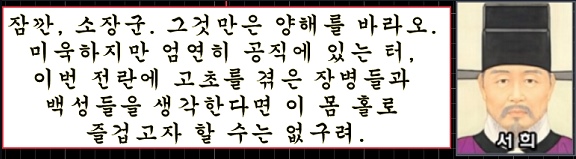 잠깐, 소장군. 그것만은 양해를 바라오.
미욱하지만 엄연히 공직에 있는 터,
이번 전란에 고초를 겪은 장병들과
백성들을 생각한다면 이 몸 홀로
즐겁고자 할 수는 없구려.
서희